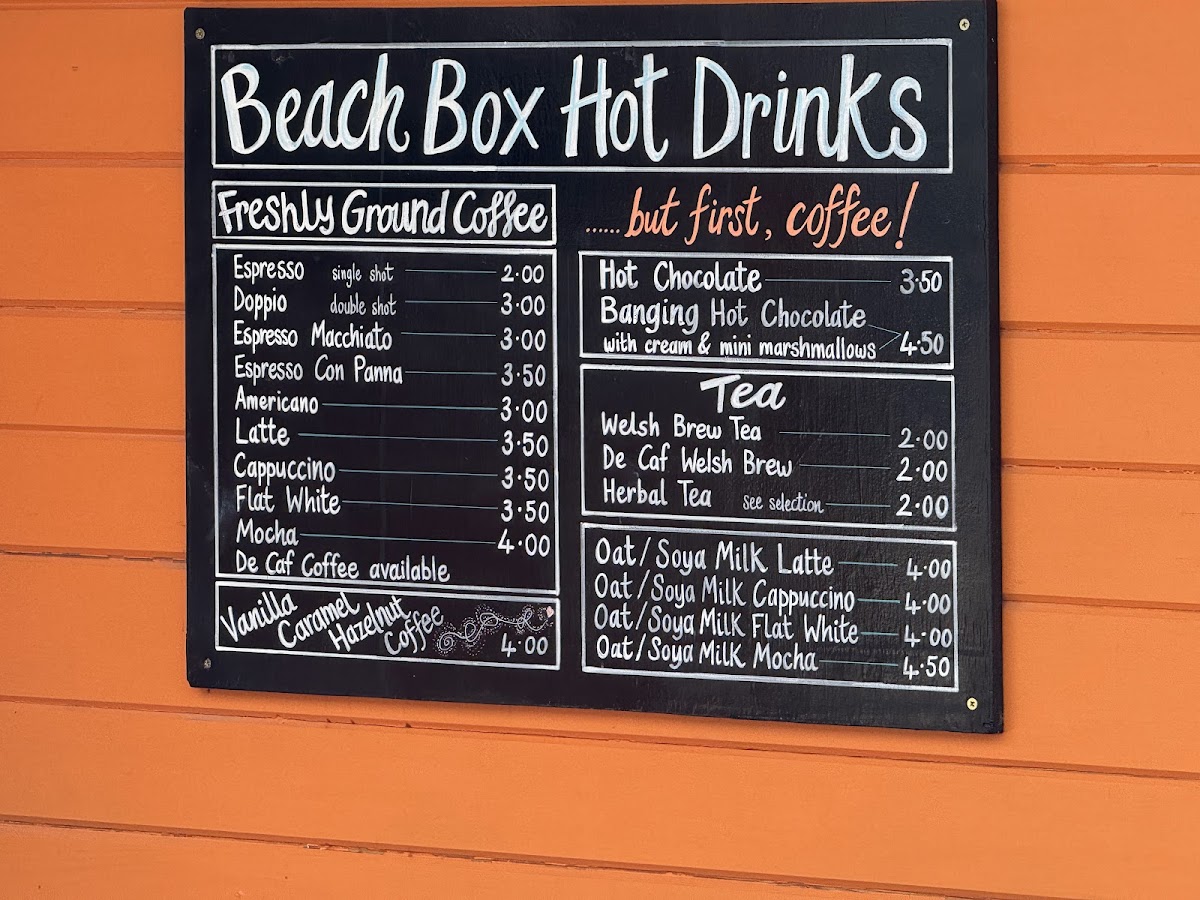 Beach Box Hot Drinks
Freshly Ground Coffee
Espresso single shot 2.00
Doppio double shot 3.00
Espresso Macchiato 3.00
Espresso Con Panna 3.50
Americano 3.00
Latte 3.50
Cappuccino 3.50
Flat White 3.50
Mocha 4.00
De Caf Coffee available
Vanilla
Caramel
Hazelnut
Coffee
4.00
......but first, coffee!
Hot Chocolate 3.50
Banging Hot Chocolate
with cream & mini marshmallows 4.50
Tea
Welsh Brew Tea 2.00
De Caf Welsh Brew 2.00
Herbal Tea see selection 2.00
Oat/Soya Milk Latte 4.00
Oat/Soya Milk Cappuccino 4.00
Oat/Soya Milk Flat White 4.00
Oat/Soya Milk Mocha 4.50